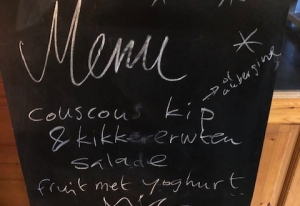 Menu
couscous kip
of aubergine
& kikkererwten
salade
fruit met yoghurt